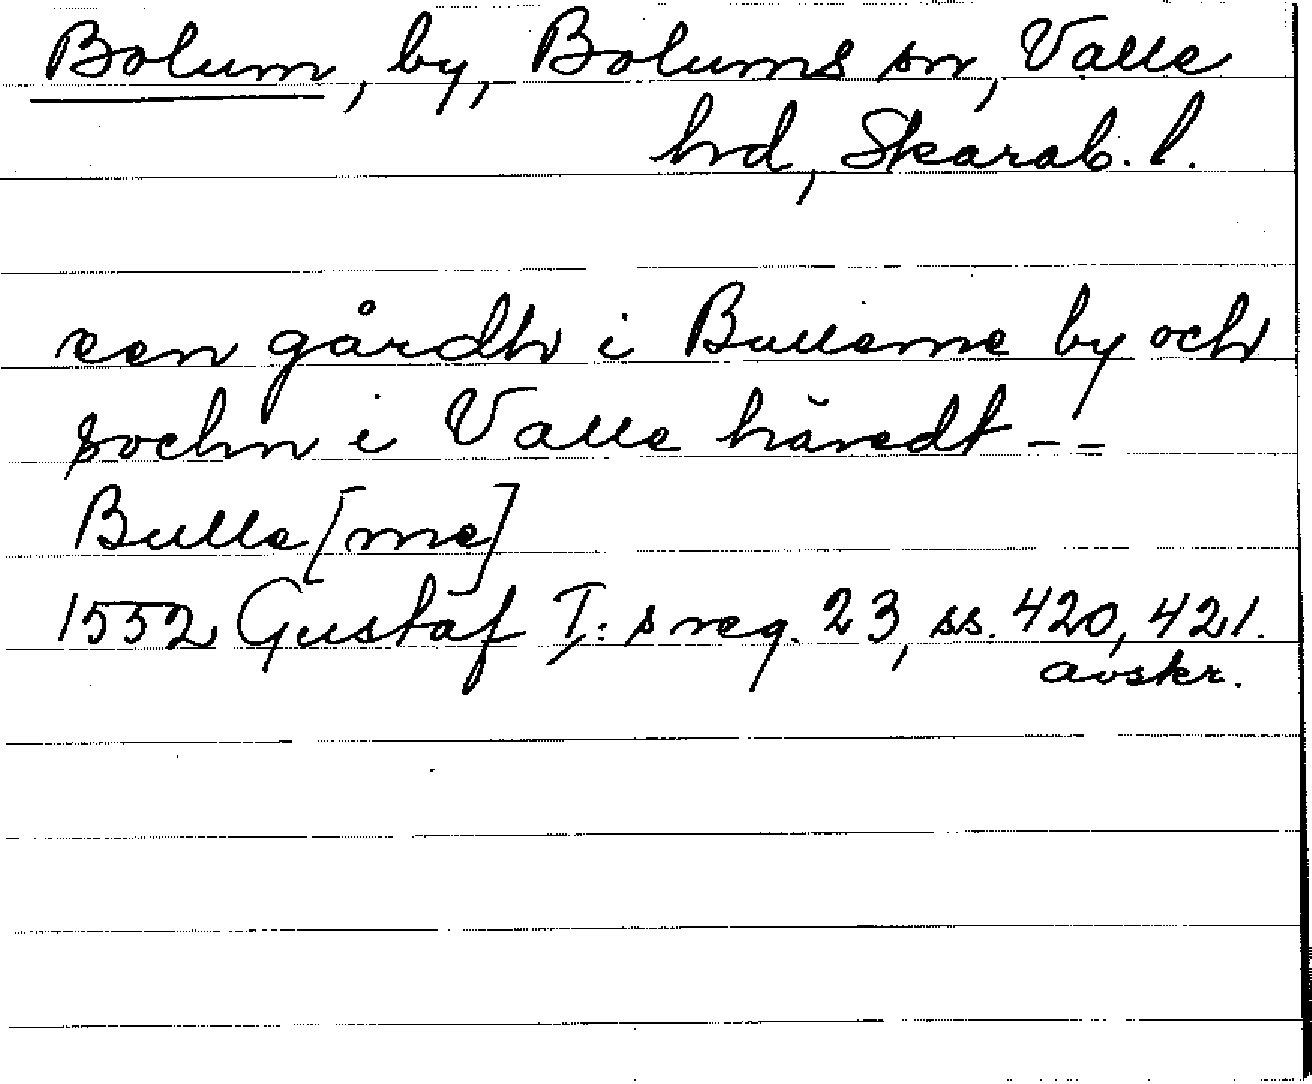 Bolum, by, Bolums sn, Valle
hd, Skarab. l.
een gårdh i Bulleme by och
sochn i Valle häredt - -
Bulle[me]
1552 Gustaf I:s reg. 23, ss. 420, 421.
avskr.